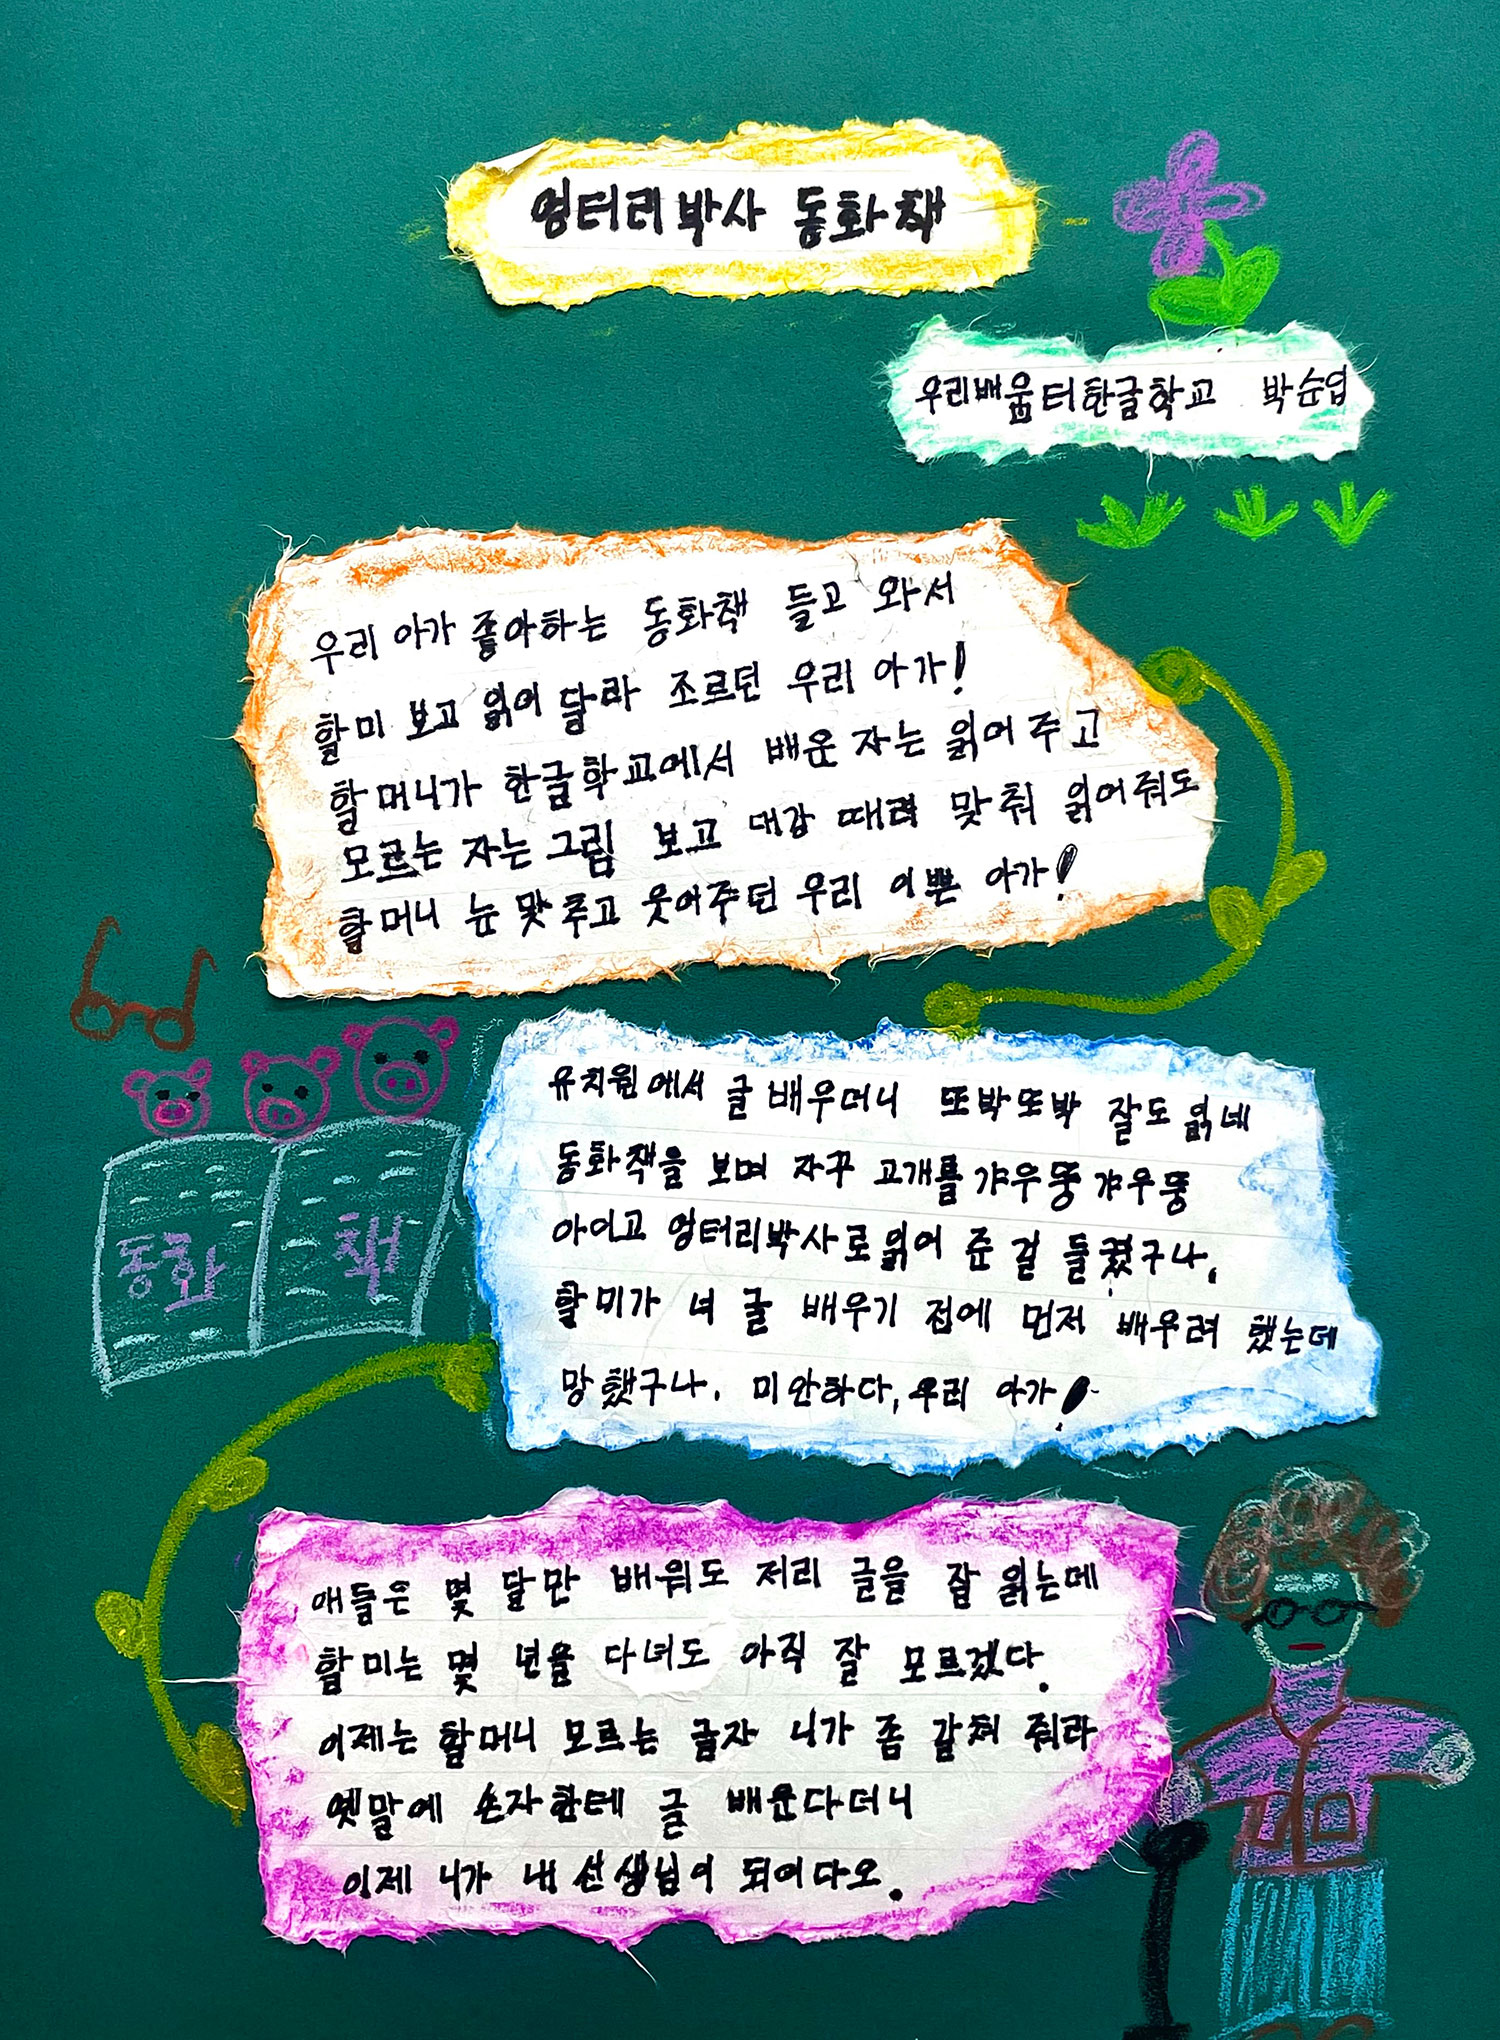 엉터리박사 동화책
우리배움터한글학교 박순엽
우리 아가 좋아하는 동화책 들고 와서
할미 보고 읽어 달라 조르던 우리 아가!
할머니가 한글학교에서 배운 자는 읽어 주고
모르는 자는 그림 보고 대강 때려 맞춰 읽어줘도
할머니 눈 맞추고 웃어주던 우리 이쁜 아가!
유치원에서 글 배우더니 또박또박 잘도 읽네
동화책을 보며 자꾸 고개를 갸우뚱갸우뚱
아이고 엉터리박사로 읽어 준 걸 들켰구나.
할미가 너 글 배우기 전에 먼저 배우려 했는데
망했구나. 미안하다, 우리 아가!
동화 책
애들은 몇 달만 배워도 저리 글을 잘 읽는데
할미는 몇 년을 다녀도 아직 잘 모르겠다.
이제는 할머니 모르는 글자 니가 좀 갈쳐 줘라
옛말에 손자한테 글 배운다더니
이제 니가 내 선생님이 되어다오.